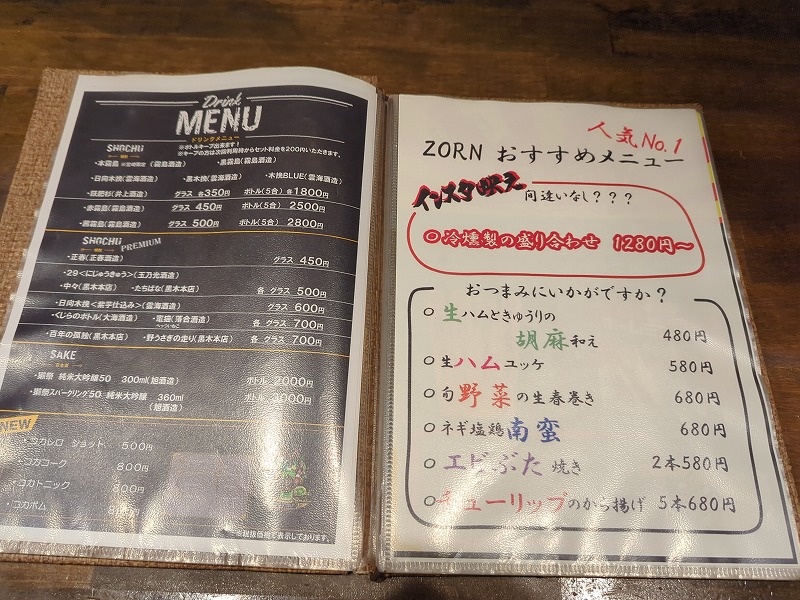 Drink
MENU
ドリンクメニュー
SHOCHU
※ボトルキープ出来ます!
※キープの方は次回利用時からセット料金を200円いただきます。
・本霧島 (霧島酒造) ・黒霧島(霧島酒造)
・日向木挽(雲海酒造) ・黒木挽(雲海酒造) ・木挽BLUE(雲海酒造)
・銕肥杉(井上酒造) グラス 各350円 ボトル(5合) 各1800円
・赤霧島(霧島酒造) グラス 450円 ボトル(5合) 2500円
・茜霧島(霧島酒造) グラス 500円 ボトル(5合) 2800円
SHOCHU PREMIUM
・正春(正春酒造) グラス 450円
・29<にじゅうきゅう>(玉乃光酒造)
・中々(黒木本店) ・たちばな(黒木本店) 各 グラス 500円
・日向木挽<紫芋仕込み>(雲海酒造) グラス 600円
・くじらのボトル(大海酒造) ・竃猫(落合酒造) 各 グラス 700円
・百年の孤独(黒木本店) ・野うさぎの走り(黒木本店) 各 グラス 700円
SAKE
日本酒
・獺祭 純米大吟醸50 300ml(旭酒造) ボトル 2000円
・獺祭スパークリング50 純米大吟醸 360ml (旭酒造) ボトル 3000円
NEW
・コカレロ ショット 500円
・コカコーク 800円
・コカトニック 800円
・コカボム
※税抜価格で表示しております。
人気No.1
ZORN おすすめメニュー
インスタ映え 間違いなし???
○冷燻製の盛り合わせ 1280円~
おつまみにいかがですか?
○生ハムときゅうりの
胡麻和え 480円
○生ハムユッケ 580円
○旬野菜の生春巻き 680円
○ネギ塩鶏南蛮 680円
○エビぶた焼き 2本580円
○チューリップのから揚げ 5本680円